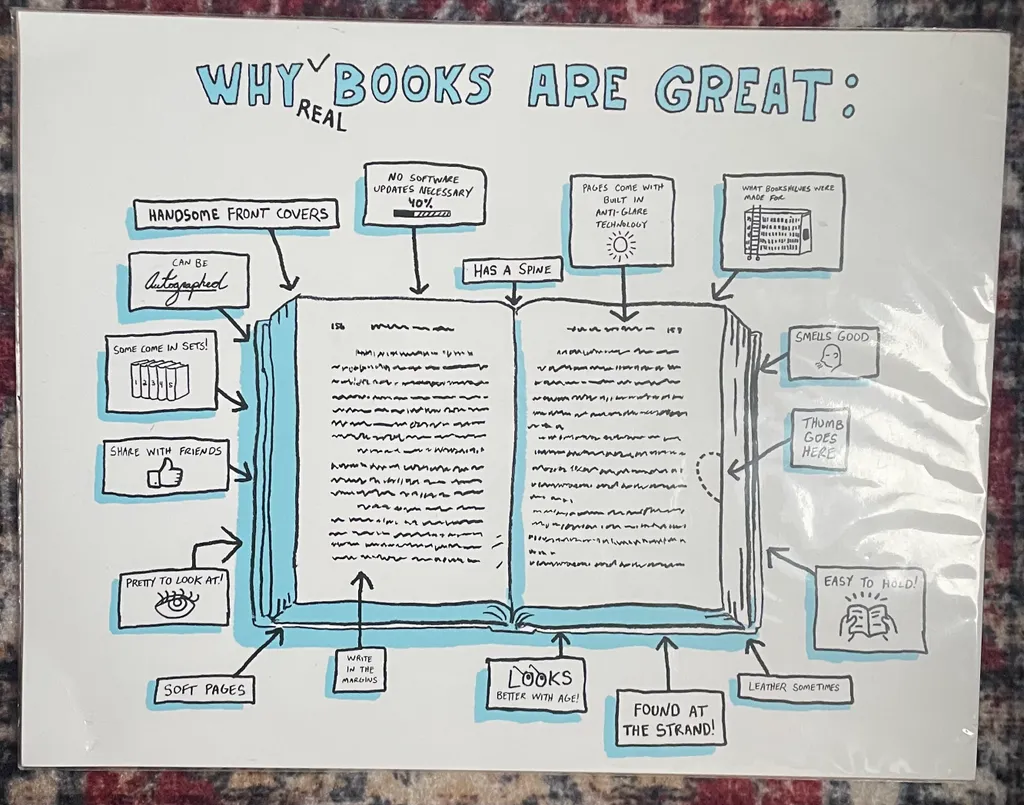 WHY BOOKS ARE GREAT:
REAL
HANDSOME FRONT COVERS
NO SOFTWARE
UPDATES NECESSARY
40%
HAS A SPINE
PAGES COME WITH
BUILT IN
ANTI-GLARE
TECHNOLOGY
WHAT BOOKSHELVES WERE
MADE FOR
CAN BE
Autographed
SOME COME IN SETS!
1 2 3 4 5
SHARE WITH FRIENDS
PRETTY TO LOOK AT!
SOFT PAGES
156
WRITE
IN THE
MARGINS
LOOKS
BETTER WITH AGE!
FOUND AT
THE STRAND!
LEATHER SOMETIMES
SMELLS GOOD
THUMB
GOES
HERE
EASY TO HOLD!